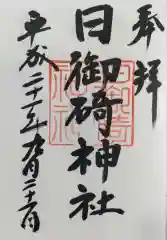 奉拝
日御碕神社
平成二十一年九月二十二日